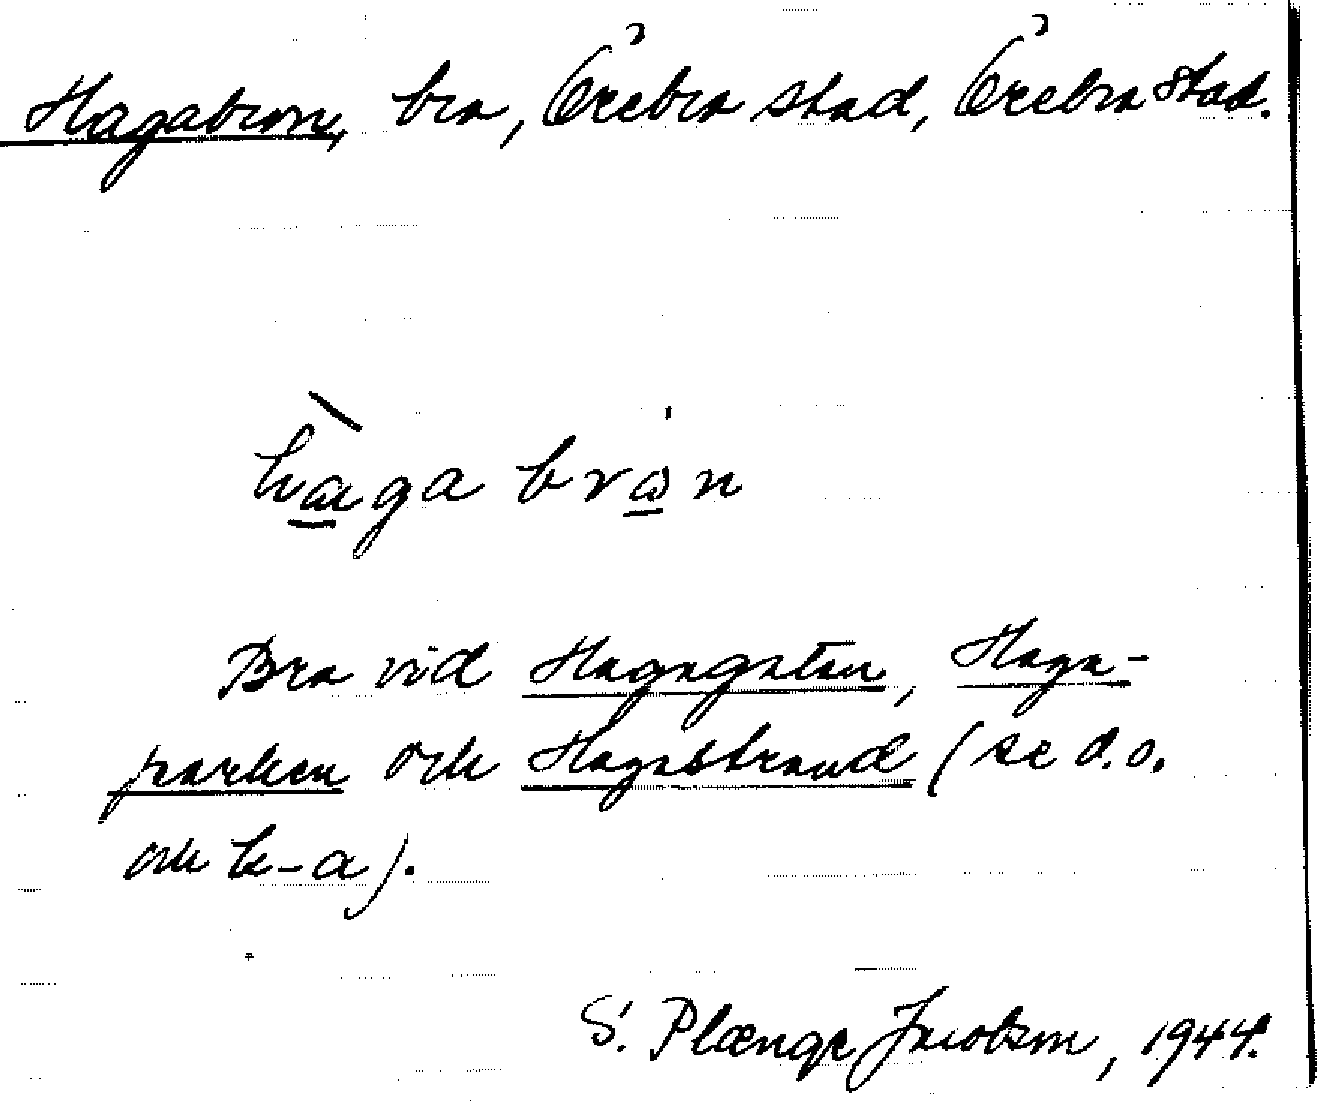 Hagabron, bro, Örebro stad, Örebro stad.
hɑ̀ga brωn
Bro vid Hagagatan, Haga-
parken och Hagastrand (se d.o.
och k-a).
S. Plænge Jacobson, 1944.